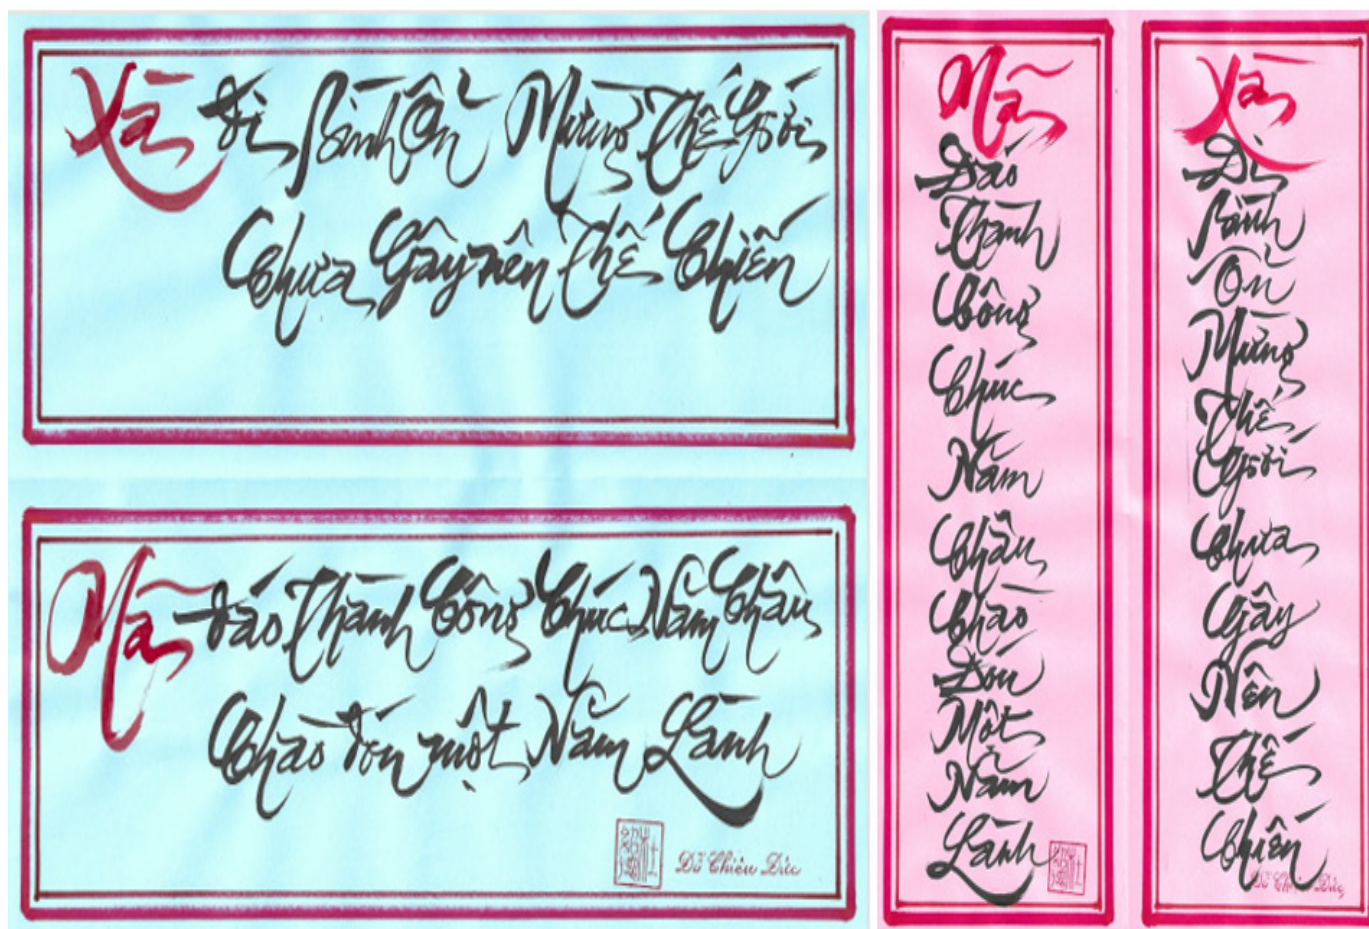 Xà Đi Bình Ổn Mừng Thế Giới
Chưa Gây nên Thế Chiến
Mã đáo Thành Công Chúc Năm Châu
Chào đón một Năm Lành
Đỗ Chiêu Đức
Mã
Đáo
Thành
Công
Chúc
Năm
Châu
Chào
Đón
Một
Năm
Lành
Xà
Đi
Bình
Ổn
Mừng
Thế
Giới
Chưa
Gây
Nên
Thế
Chiến
Đỗ Chiêu Đức